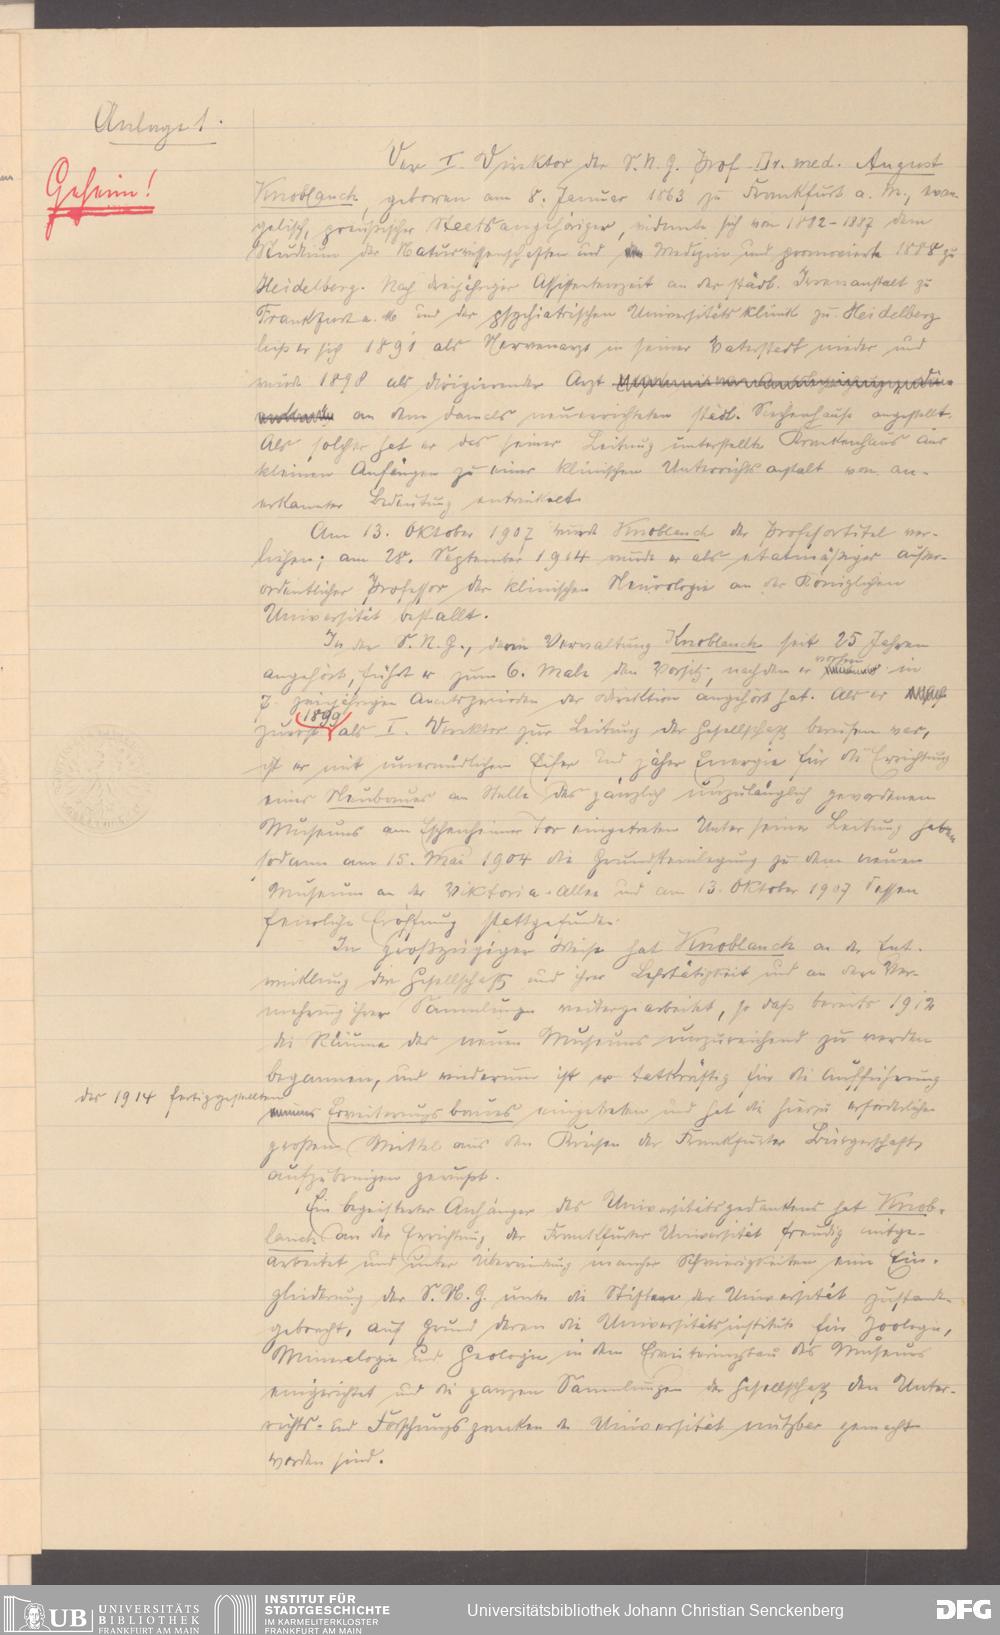 Anlage 1.
Geheim!
Der I. Direktor der S.N.G. Prof. Dr. med. August
Knoblauch, geboren am 8. Januar 1863 zu Frankfurt a. M., evan-
gelisch, preußischer Staatsangehöriger, widmete sich von 1882-1887 dem
Studium der Naturwissenschaften und Medizin und promovierte 1888 zu
Heidelberg. Nach dreijähriger Assistentenzeit an der städt. Irrenanstalt zu
Frankfurt a. M und der psychiatrischen Universitätsklinik zu Heidelberg
ließ er sich 1891 als Nervenarzt in seiner Vaterstadt nieder und
wurde 1898 als dirigierender Arzt
an dem damals neuerrichteten städt. Siechenhause angestellt.
Als solcher hat er das seiner Leitung unterstellte Krankenhaus aus
kleinen Anfängen zu einer klinischen Unterrichtsanstalt von an-
erkannter Bedeutung entwickelt.
Am 13. Oktober 1907 wurde Knoblauch der Professortitel ver-
liehen; am 28. September 1914 wurde er als etatmäßiger außer-
ordentlicher Professor der klinischen Neurologie an der Königlichen
Universität bestallt.
In der S.N.G., deren Verwaltung Knoblauch seit 25 Jahren
angehört, führt er zum 6. Male den Vorsitz, nachdem er vorher in
7 zweijährigen Amtsperioden der Direktion angehört hat. Als er
zuerst 1899 als I. Direktor zur Leitung der Gesellschaft berufen war,
ist er mit unermüdlichem Eifer und zäher Energie für die Errichtung
eines Neubaues an Stelle des gänzlich unzulänglich gewordenen
Museums am Eschenheimer Tor eingetreten. Unter seiner Leitung haben
sodann am 15. Mai 1904 die Grundsteinlegung zu dem neuen
Museum an der Viktoria-Allee und am 13. Oktober 1907 dessen
feierliche Eröffnung stattgefunden.
In großzügiger Weise hat Knoblauch an der Ent-
wicklung der Gesellschaft und ihrer Lehrtätigkeit und an der Ver-
mehrung ihrer Sammlungen weitergearbeitet, so daß bereits 1912
die Räume des neuen Museums unzureichend zu werden
begannen, und wiederum ist er tatkräftig für die Aufführung
des 1914 fertiggestellten
Erweiterungsbaues eingetreten und hat die hierzu erforderlichen
großen Mittel aus den Kreisen der Frankfurter Bürgerschaft
aufzubringen gewußt.
Ein begeisterter Anhänger des Universitätsgedankens hat Knob-
lauch an der Errichtung der Frankfurter Universität freudig mitge-
arbeitet und unter Überwindung mancher Schwierigkeiten eine Ein-
gliederung der S.N.G. unter die Stifter der Universität zustande
gebracht, auf Grund deren die Universitätsinstitute für Zoologie,
Mineralogie und Geologie in dem Erweiterungsbau des Museums
eingerichtet und die ganzen Sammlungen der Gesellschaft den Unter-
richts- und Forschungszwecken der Universität nutzbar gemacht
worden sind.
UB UNIVERSITÄTS
BIBLIOTHEK
FRANKFURT AM MAIN
INSTITUT FÜR
STADTGESCHICHTE
IM KARMELITERKLOSTER
FRANKFURT AM MAIN
Universitätsbibliothek Johann Christian Senckenberg
DFG